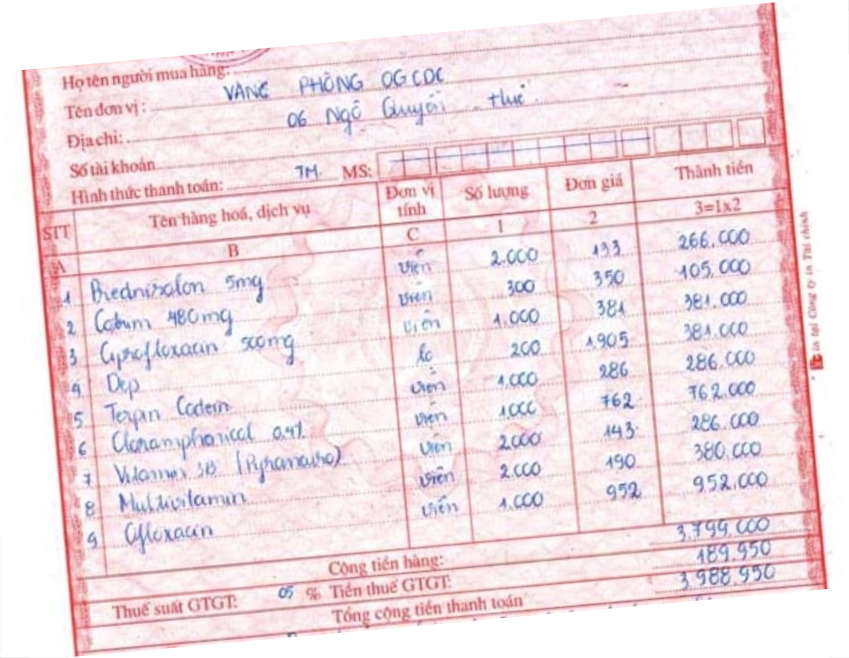 Họ tên người mua hàng:
Tên đơn vị: VĂNG PHÒNG OGCDC
Địa chỉ: 06 Ngô Quyền Huế
Số tài khoản
Hình thức thanh toán: TM. MS:
STT Tên hàng hoá, dịch vụ Đơn vị tính Số lượng Đơn giá Thành tiền
A B C 1 2 3=1x2
1 Prednisolon 5mg viên 2.000 133 266.000
2 Cotrim 480mg viên 300 350 105.000
3 Ciprofloxacin 500mg viên 1.000 381 381.000
4 Dep lọ 200 1.905 381.000
5 Terpin Codein viên 1.000 286 286.000
6 Cloramphenical 0,4% viên 1000 762 762.000
7 Vitamin 3B viên 2000 143 286.000
8 Multivitamin viên 2.000 190 380.000
9 Ofloxacin viên 1.000 952 952.000
Cộng tiền hàng: 3.799.000
Thuế suất GTGT: 05 % Tiền thuế GTGT: 189.950
Tổng cộng tiền thanh toán 3.988.950
in tại Công ty in Tài chính